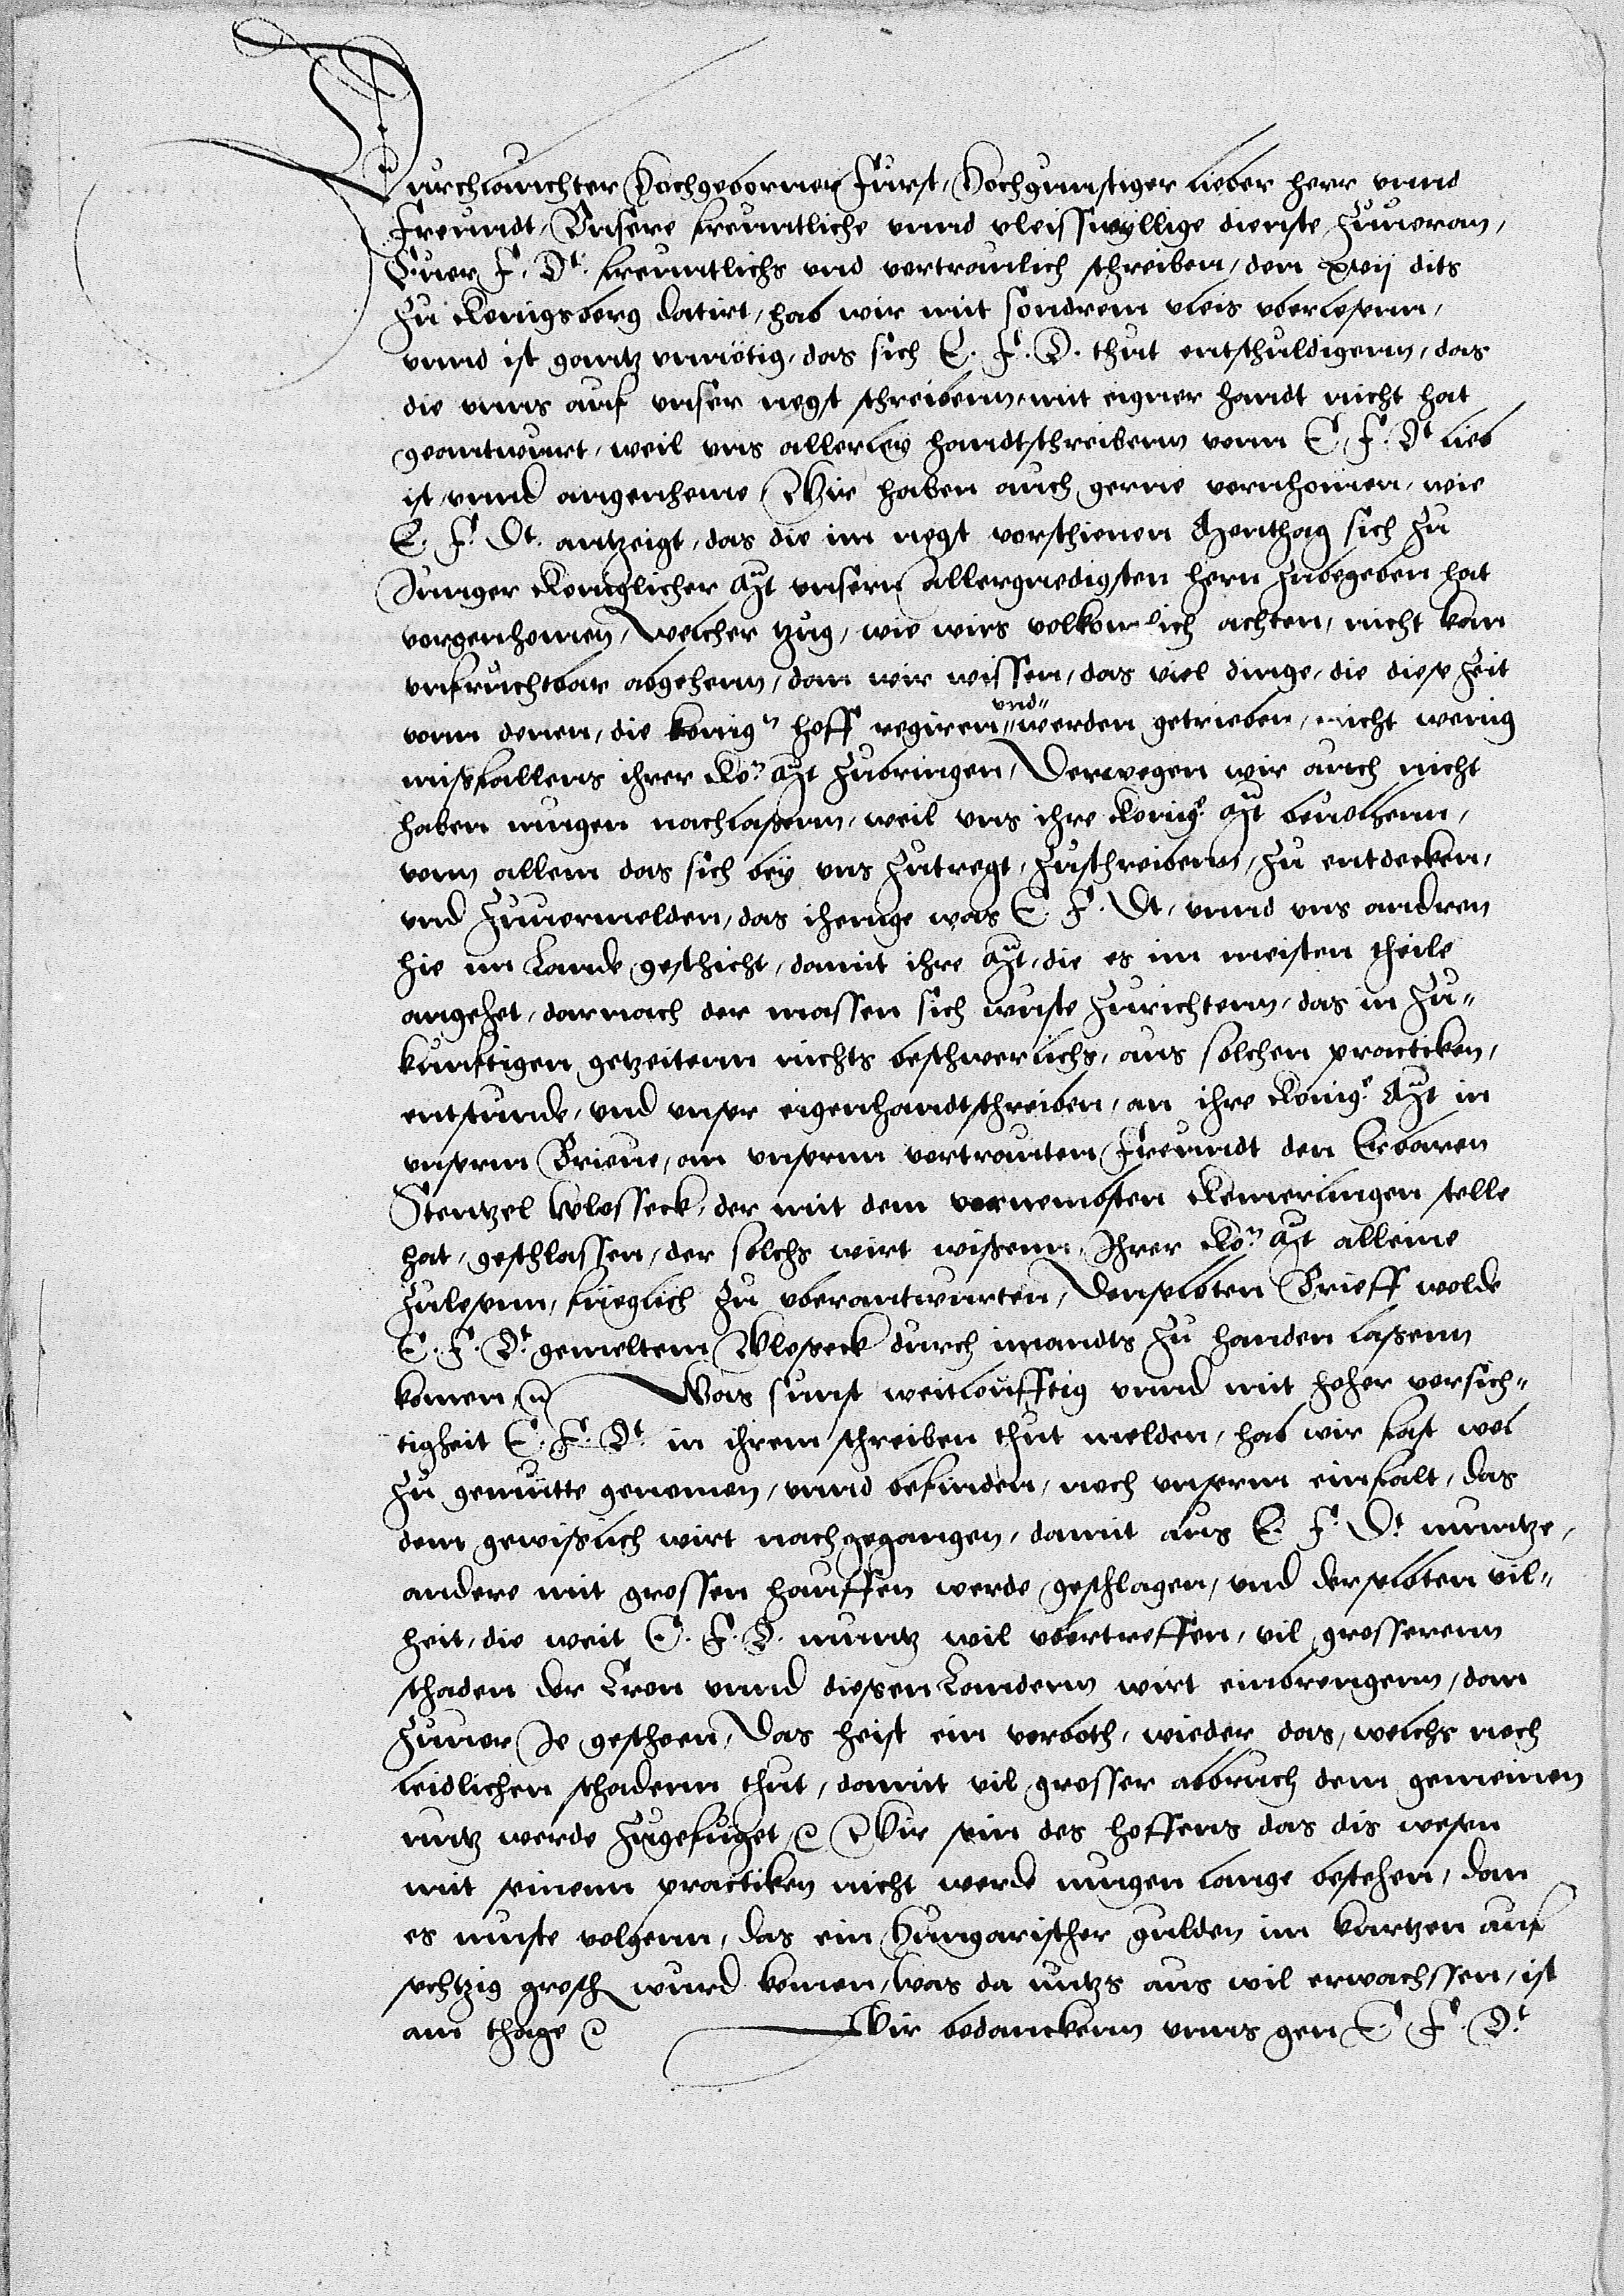 Durchlauchter Hochgeborner Furst, Hochgunstiger lieber herr vnnd
Freundt, Vnsere freuntliche vnnd vleisswyllige dienste zuuoran,
Euer F. Dt. freuntlichs vnd vertreulich schreiben, den xvij dits
zu Konigsberg datirt, hab wir mit sondrem vleis vberlesenn,
vnnd ist gantz vnnötig, das sich E. F. D. thut entschuldigenn, das
die vnns auf vnser negst schreibenn mit eigner handt nicht hat
geantwurt, weil vns allerley handtschreibenn vonn E. F. Dt lieb
ist vnnd angenheme, Wir haben auch gerne vernhomen, wie
E. F. Dt. antzeigt, das die im negst verschienen Monthag sich zu
Junger koniglicher Mt vnsern allergnedigsten hern zubegeben hat
vorgenhomen, welcher tzug, wie wirs volkomlich achten, nicht kan
vnfruchtbar abgehenn, dan wir wissen, das viel dinge, die diese zeit
vonn denen, die konign hoff regiren vnd werden getrieben, nicht wenig
misfallens ihrer Kon Mt zubringen, Derwegen wir auch nicht
haben mugen nachlasenn, weil vns ihre Konige Mt beuolhenn,
vonn allem das sich bey vns zutregt, zuschreibenn, zu entdecken,
vnd zuuermelden, das ihenige was E. F. Dt, vnnd vns andren
hie im Lande geschicht, damit ihre Mt, die es im meisten theile
angehet, darnach der massen sich wuste zurichtenn, das in zu-
kunftigen getzeitenn nichts beschwerlichs, aus solchen practiken,
entstunde, vnd vnser eigenhandtschreiben, an ihre Konige Mt in
vnserm Brieue, an vnsernn vertrauten Freundt den Erbaren
Stentzel Wlosseck, der mit dem vornemosten Kemerlingen stelle
hat, geschlassen, der solchs wirt wißenn, Ihrer Kon Mt alleine
zulesenn, fueglich zu vberantwurten, Denselbten Brieff wolde
E. F. Dt. gemeltem Wloseck durch imandts zu handen laßenn
komen etc Was sunst weitleufftig vnnd mit hoher vorsich-
tigheit E. F. Dt. in ihrem schreiben thut melden, hab wir fast wol
zu gemütte genomen, vnnd befinden, noch vnserm einfalt, das
dem gewißlich wirt nachgegangen, damit aus E. F. Dt muntze,
andere mit grossen hauffen werde geschlagen, vnd derselbten vil-
heit, die weit E. F. D. muntz wil vbertreffen, vil grosserenn
schaden der Cron vnnd diesen Landenn wirt einbrengenn, dan
zuuor Je gescheen, Das heist ein verboth, wieder das, welchs noch
leidlichen schadenn thut, damit vil grosser abbruch dem gemeinen
nutz werde zugefuget etc Wir sein des hoffens das dis wesen
mit seinenn practiken nicht werde mugen lange bestehen, dan
es muste volgenn, das ein Hungarischer gulden im kurtzen auf
sechtzig grosch wurd komen, was da nutzs aus wil erwachssen, ist
am thage etc Wir bedanckenn vnns gen E. F. Dt